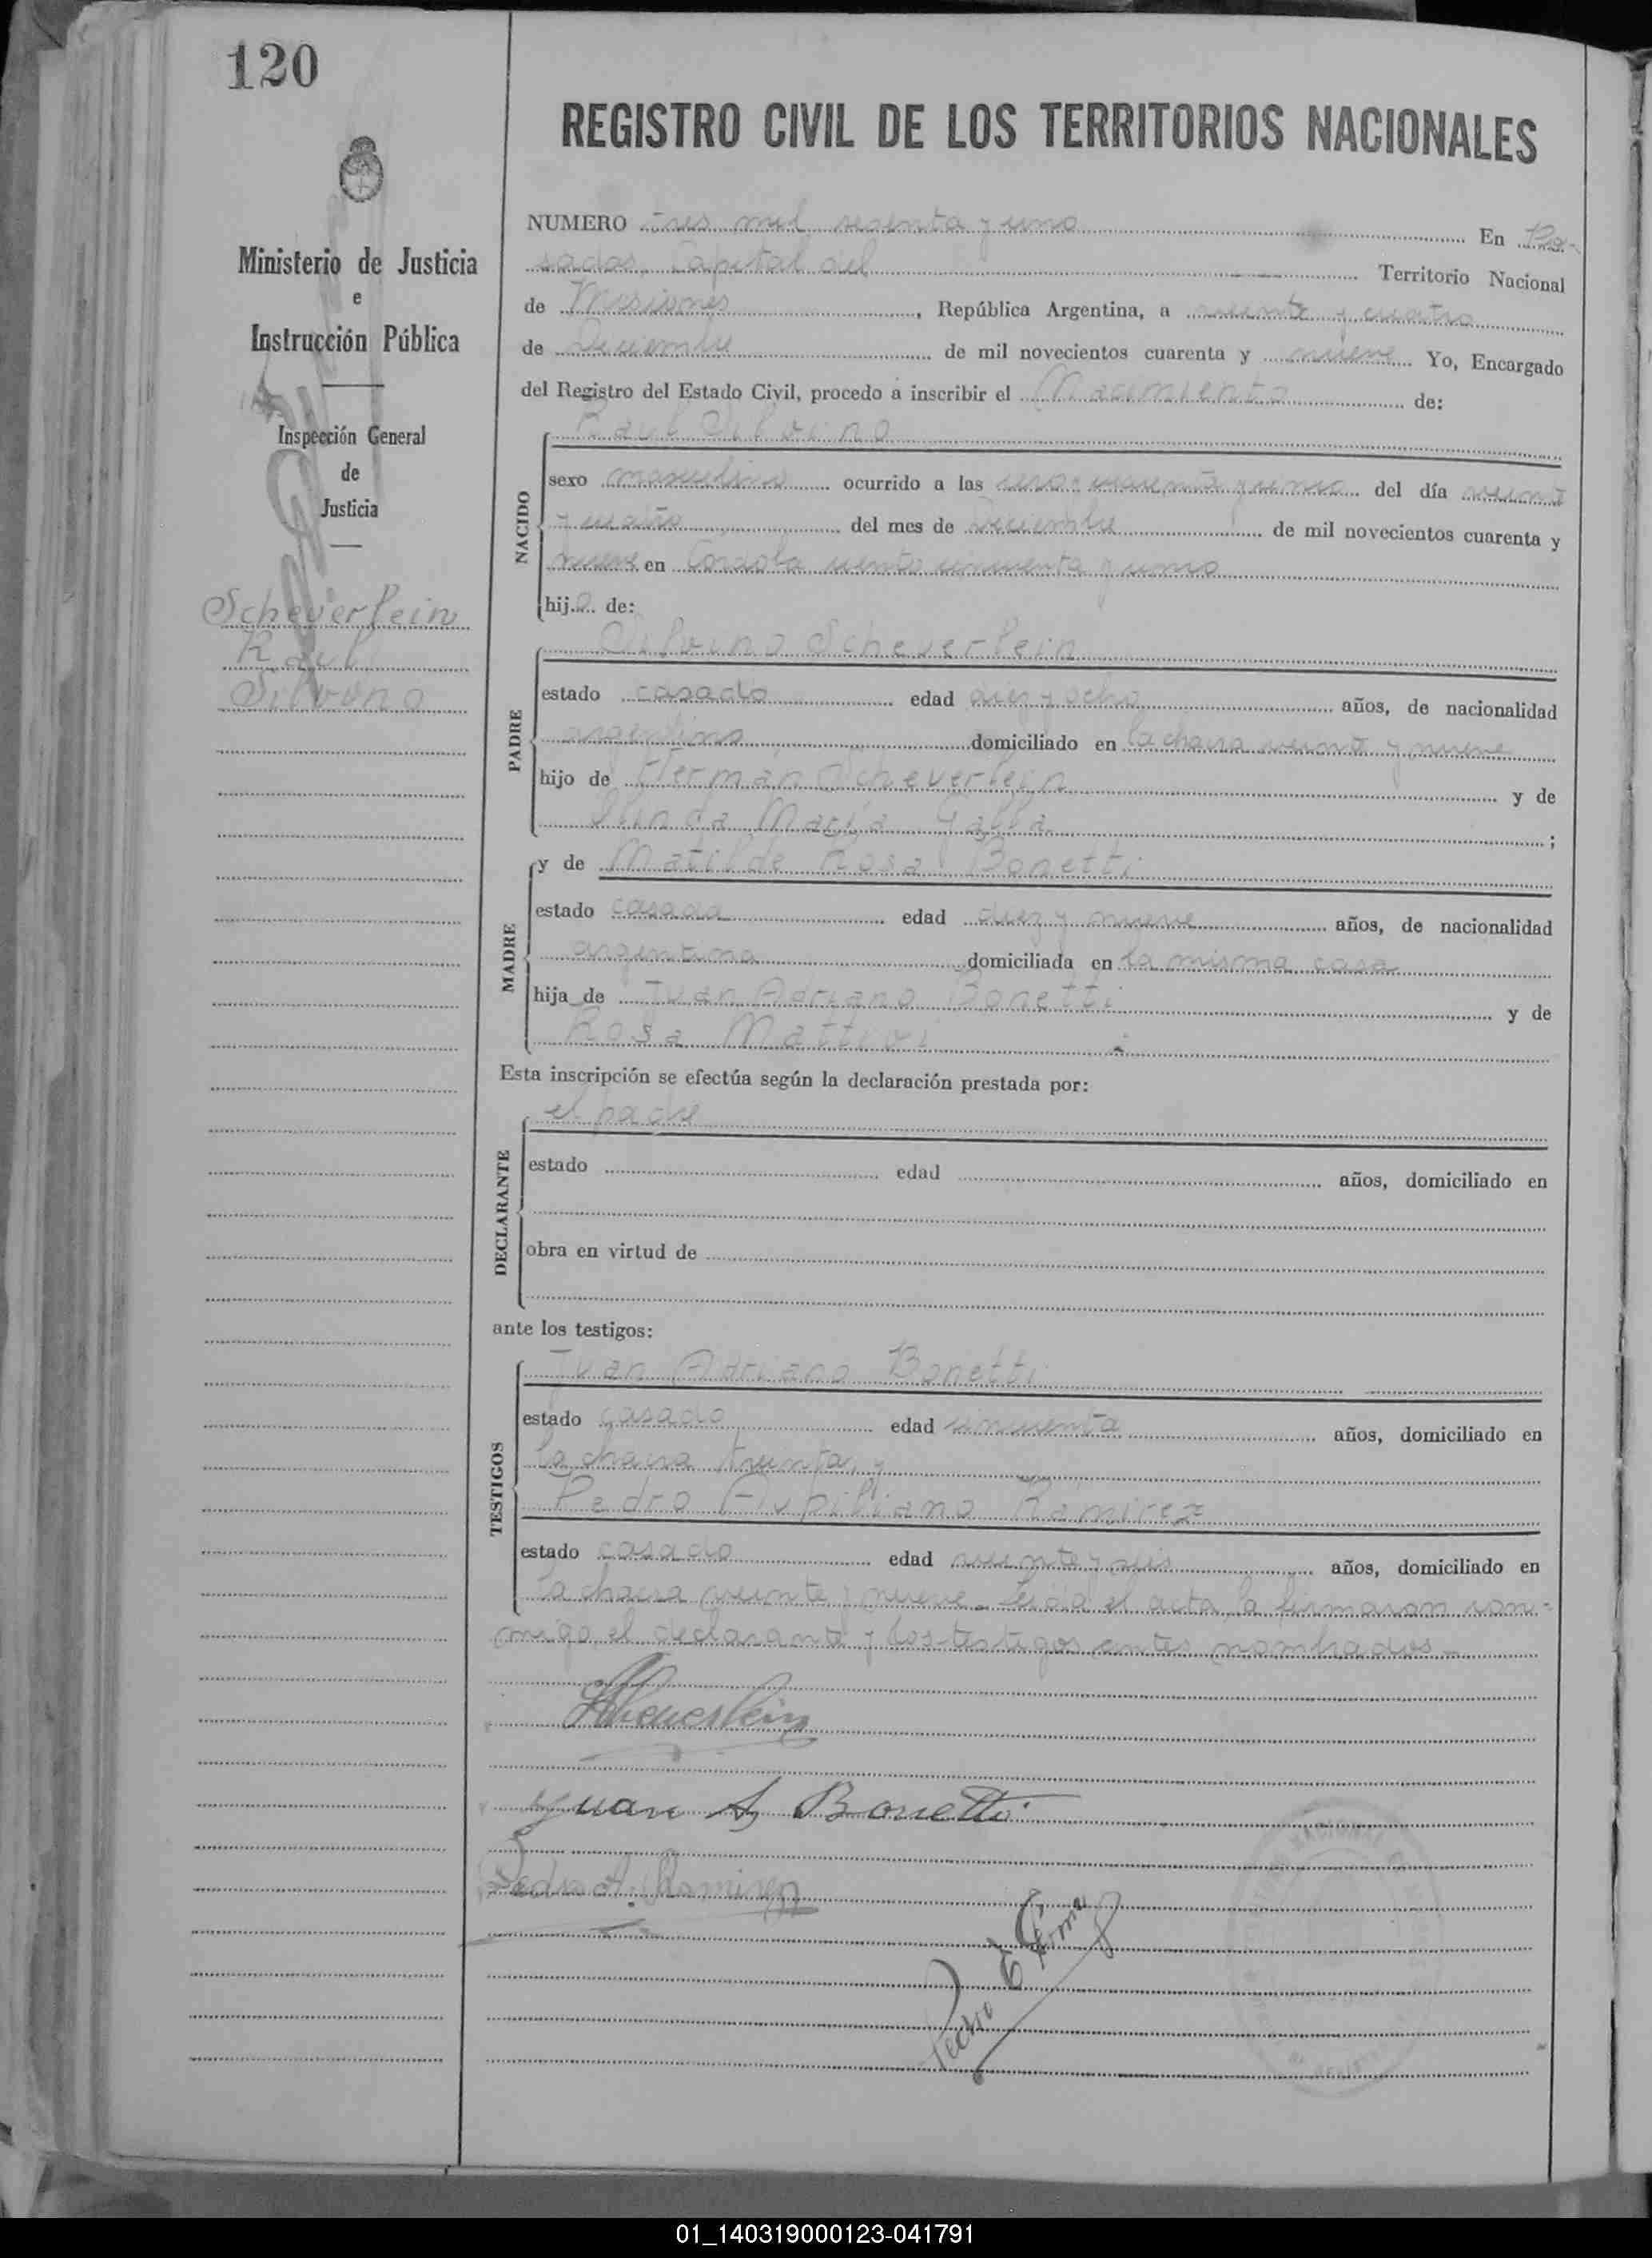 120
REGISTRO CIVIL DE LOS TERRITORIOS NACIONALES
Ministerio de Justicia
e
Instrucción Pública
Inspección General
de
Justicia
Scheverlein
Raul
Silvino
NUMERO tres mil sesenta y uno En Po-
sadas, Capital del Territorio Nacional
de Misiones, República Argentina, a veinte y cuatro
de Diciembre de mil novecientos cuarenta y nueve Yo, Encargado
del Registro del Estado Civil, procedo a inscribir el Nacimiento de:
NACIDO
Raul Silvino
sexo masculino ocurrido a las cero cuarenta y cinco del día veinte
y cuatro del mes de Diciembre de mil novecientos cuarenta y
nueve en Córdoba ciento cincuenta y uno
hijo de:
PADRE
Silvino Scheverlein
estado casado edad diez y ocho años, de nacionalidad
argentino domiciliado en la chacra veinte y nueve
hijo de Hermán Scheverlein y de
María ;
MADRE
y de Matilde Rosa Bonetti
estado casada edad diez y nueve años, de nacionalidad
argentina domiciliada en la misma casa
hija de Juan Adriano Bonetti y de
Rosa Mattivi
Esta inscripción se efectúa según la declaración prestada por:
DECLARANTE
el padre
estado edad años, domiciliado en
obra en virtud de
ante los testigos:
TESTIGOS
Juan Adriano Bonetti
estado casado edad cincuenta años, domiciliado en
la chacra treinta, y
Pedro Ramirez
estado casado edad veinte y seis años, domiciliado en
la chacra veinte y nueve. Leida el acta, la firmaron con-
migo, el declarante y los testigos antes nombrados.-
SScheverlein
Juan A Bonetti
Pedro A. Ramirez
Pedro E
01_140319000123-041791